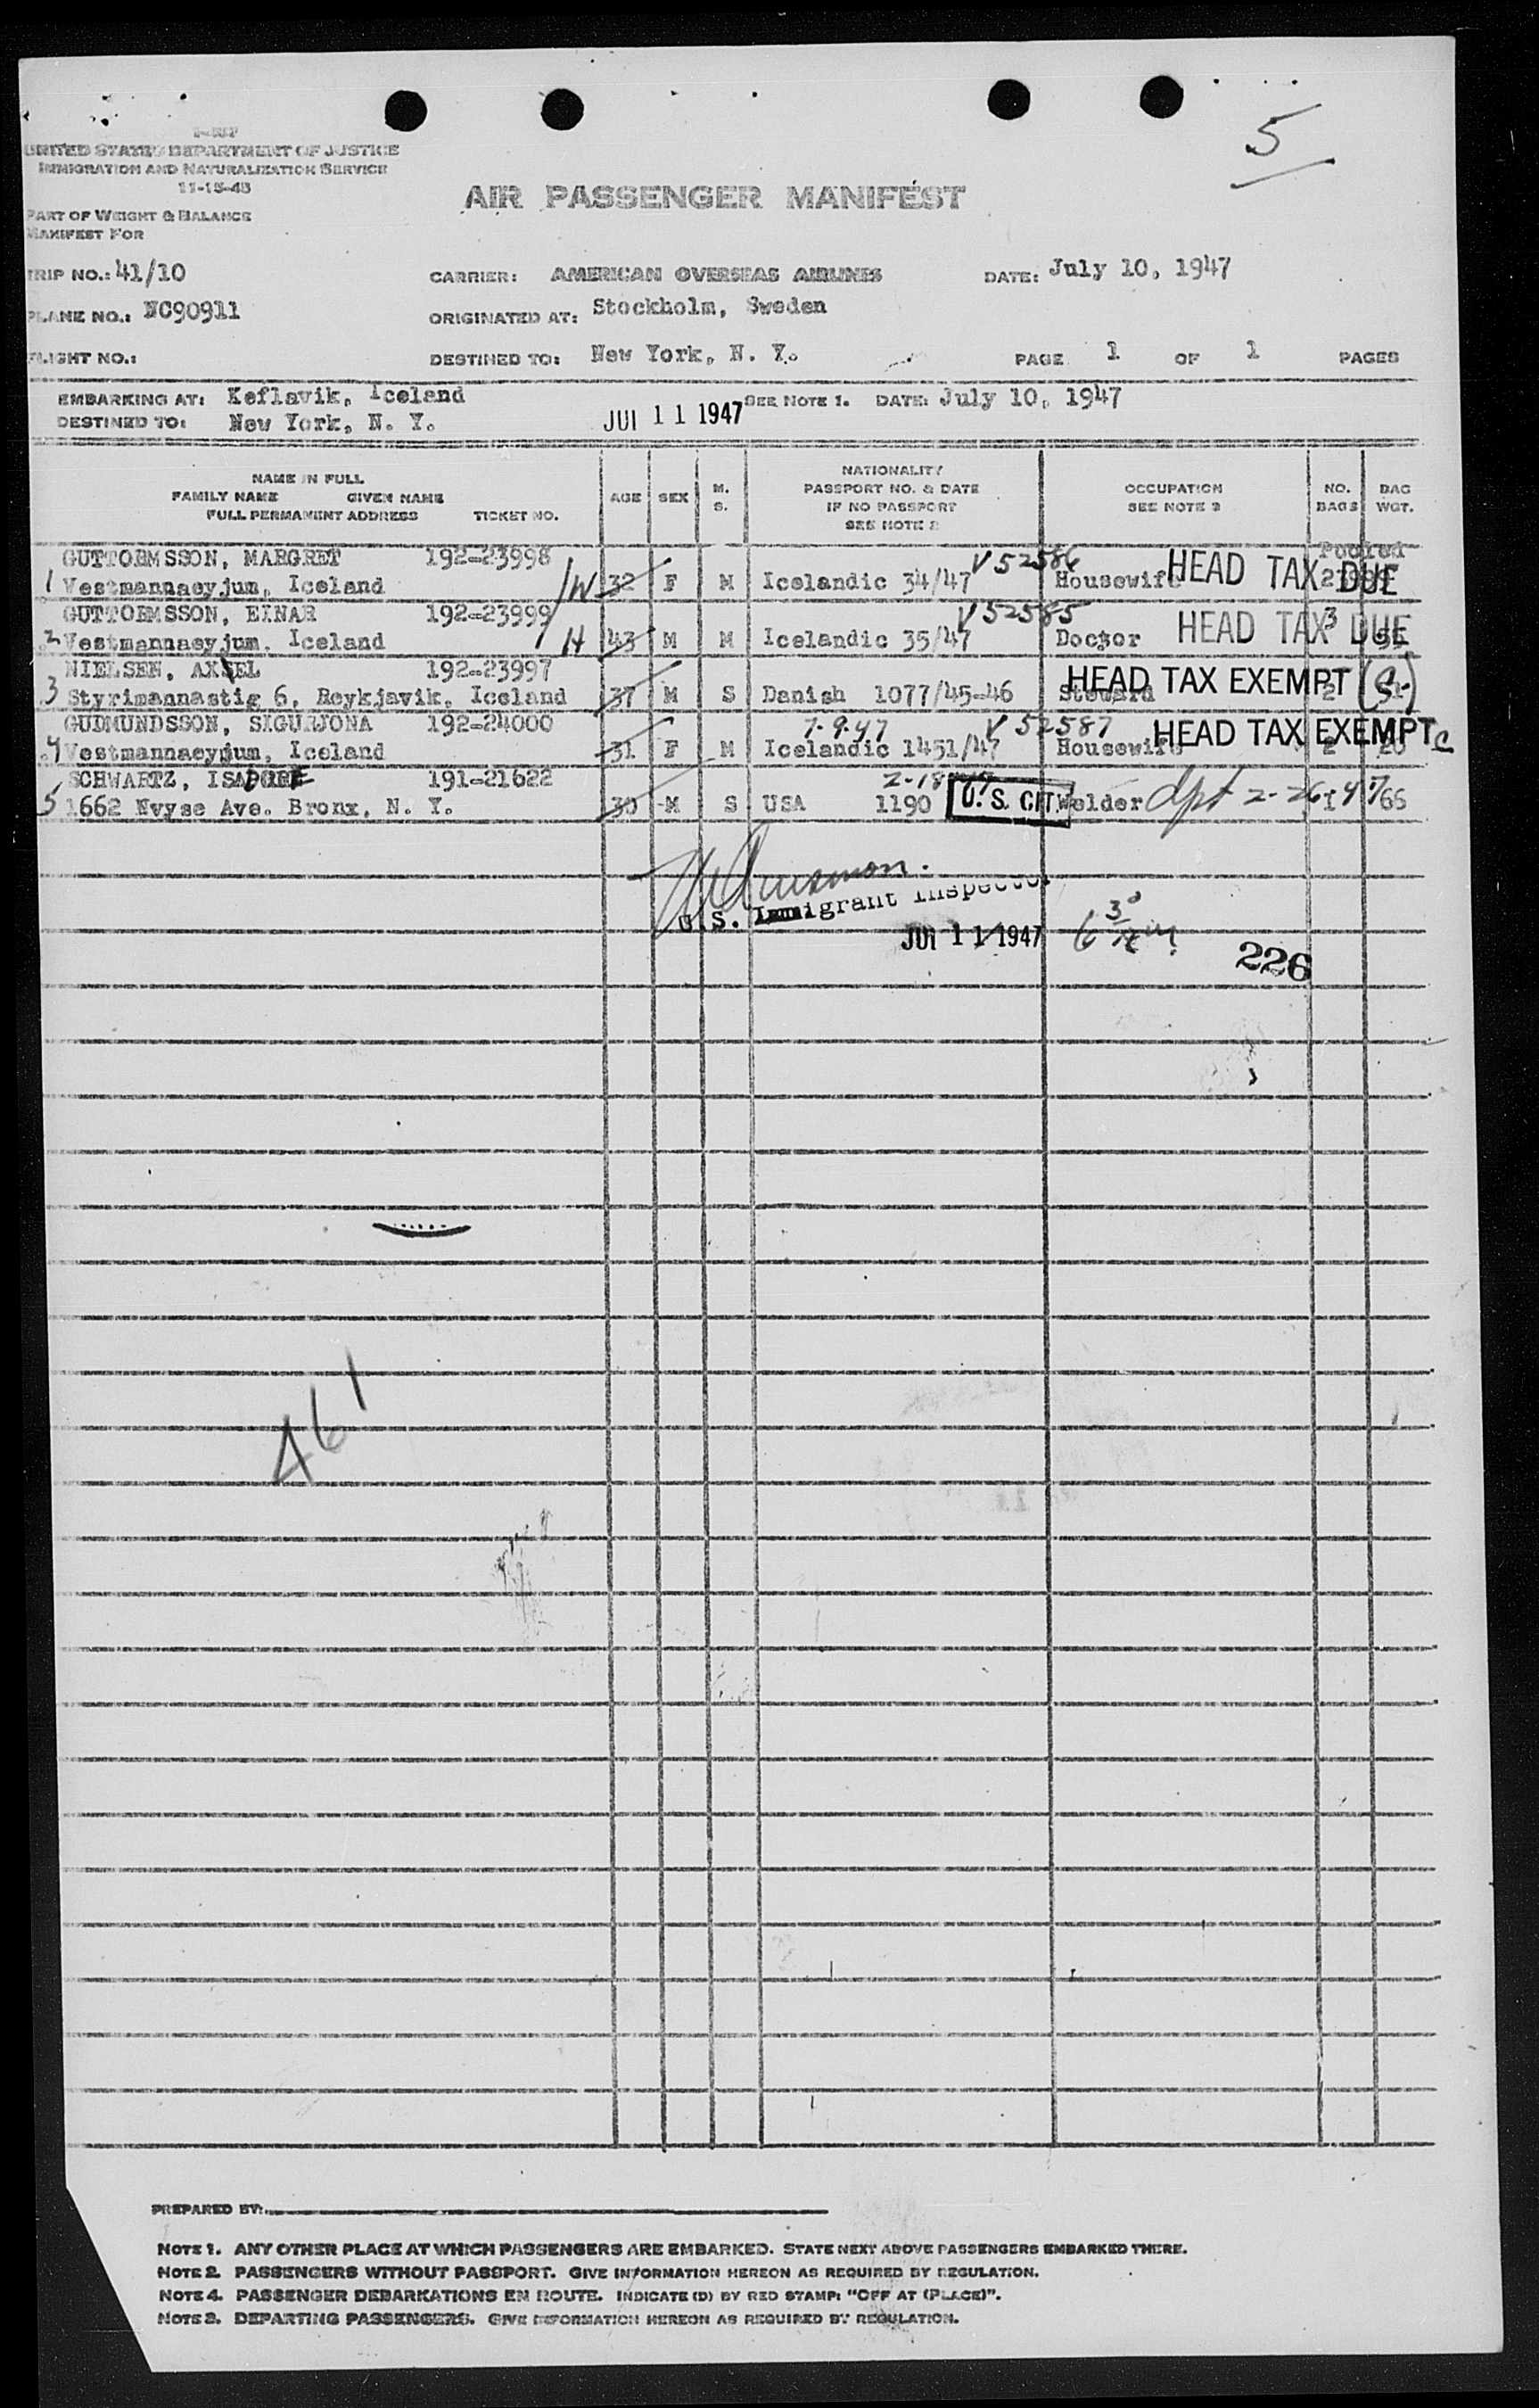 5
UNITED STATES DEPARTMENT OF JUSTICE
IMMIGRATION AND NATURALIZATION SERVICE
11-15-45
AIR PASSENGER MANIFEST
PART OF WEIGHT & BALANCE
MANIFEST FOR
TRIP NO.: 41/10 CARRIER: AMERICAN OVERSEAS AIRLINES DATE: July 10, 1947
PLANE NO.: NC90911 ORIGINATED AT: Stockholm, Sweden
FLIGHT NO.: DESTINED TO: New York, N. Y. PAGE 1 OF 1 PAGES
EMBARKING AT: Keflavik, Iceland SEE NOTE 1. DATE: July 10, 1947
DESTINED TO: New York, N. Y. JUL 11 1947
NAME IN FULL
FAMILY NAME GIVEN NAME
FULL PERMANENT ADDRESS TICKET NO.
AGE SEX M. S.
NATIONALITY
PASSPORT NO. & DATE
IF NO PASSPORT
SEE NOTE 2
OCCUPATION
SEE NOTE 3
NO. BAGS
BAG WGT.
GUTTORMSSON, MARGRET 192-23998 V 52586 Pooled
1 Vestmannaeyjum, Iceland W 32 F M Icelandic 34/47 Housewife HEAD TAX DUE
GUTTORMSSON, EINAR 192-23999 V 52585 3
2 Vestmannaeyjum, Iceland H 43 M M Icelandic 35/47 Doctor HEAD TAX DUE
NIELSEN, AXEL 192-23997
3 Styrimannastig 6, Reykjavik, Iceland 37 M S Danish 1077/45-46 Steward HEAD TAX EXEMPT 2
GUDMUNDSSON, SIGURJONA 192-24000 7-9-47 V 52587
4 Vestmannaeyjum, Iceland 31 F M Icelandic 1451/47 Housewife HEAD TAX EXEMPT C 2 20
SCHWARTZ, ISADORE 191-21622 2-18
5 1662 Nvyse Ave. Bronx, N. Y. 30 M S USA 1190 U. S. CIT. Welder dpt 2-26-47 1 66
U. S. Immigrant Inspector
JUL 11 1947
226
461
PREPARED BY:
NOTE 1. ANY OTHER PLACE AT WHICH PASSENGERS ARE EMBARKED. STATE NEXT ABOVE PASSENGERS EMBARKED THERE.
NOTE 2. PASSENGERS WITHOUT PASSPORT. GIVE INFORMATION HEREON AS REQUIRED BY REGULATION.
NOTE 4. PASSENGER DEBARKATIONS EN ROUTE. INDICATE (D) BY RED STAMP: "OFF AT (PLACE)".
NOTE 3. DEPARTING PASSENGERS. GIVE INFORMATION HEREON AS REQUIRED BY REGULATION.